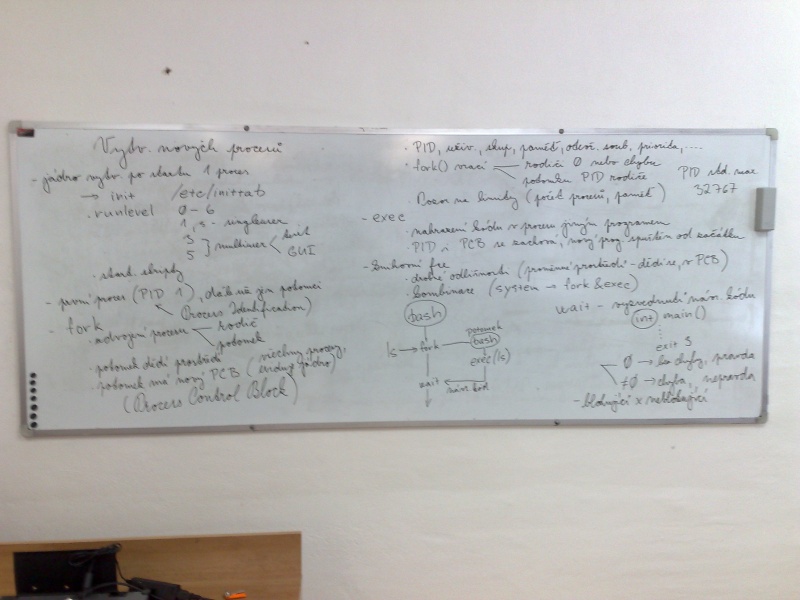 Vytv. nových procesů
- jádro vytv. po startu 1 proces
→ init /etc/inittab
· runlevel 0 - 6
1, s - singleuser
3
5 } multiuser < text
GUI
· start. skripty
- první proces (PID 1), další už jen potomci
(Process Identification)
- fork
· zdvojení procesu — rodič
potomek
· potomek dědí prostředí
· potomek má nový PCB (všechny procesy,
eviduje jádro)
(Process Control Block)
· PID, uživ., skup., paměť, otevř. soub., priorita, ....
· fork() vrací — rodiči 0 nebo chybu
potomku PID rodiče
PID std. max
32767
· Pozor na limity (počet procesů, paměť)
- exec
· nahrazení kódu v procesu jiným programem
· PID i PCB se zachová, nový prog. spuštěn od začátku
- Knihovní fce
· drobné odlišnosti (proměnné prostředí - dědí se, v PCB)
· kombinace (system → fork & exec)
bash
ls → fork → potomek
bash
exec(ls)
wait ← návr. kód
wait - vyzvednutí návr. kódu
int main()
exit 3
0 → bez chyby, pravda
≠0 → chyba, nepravda
- blokující x neblokující